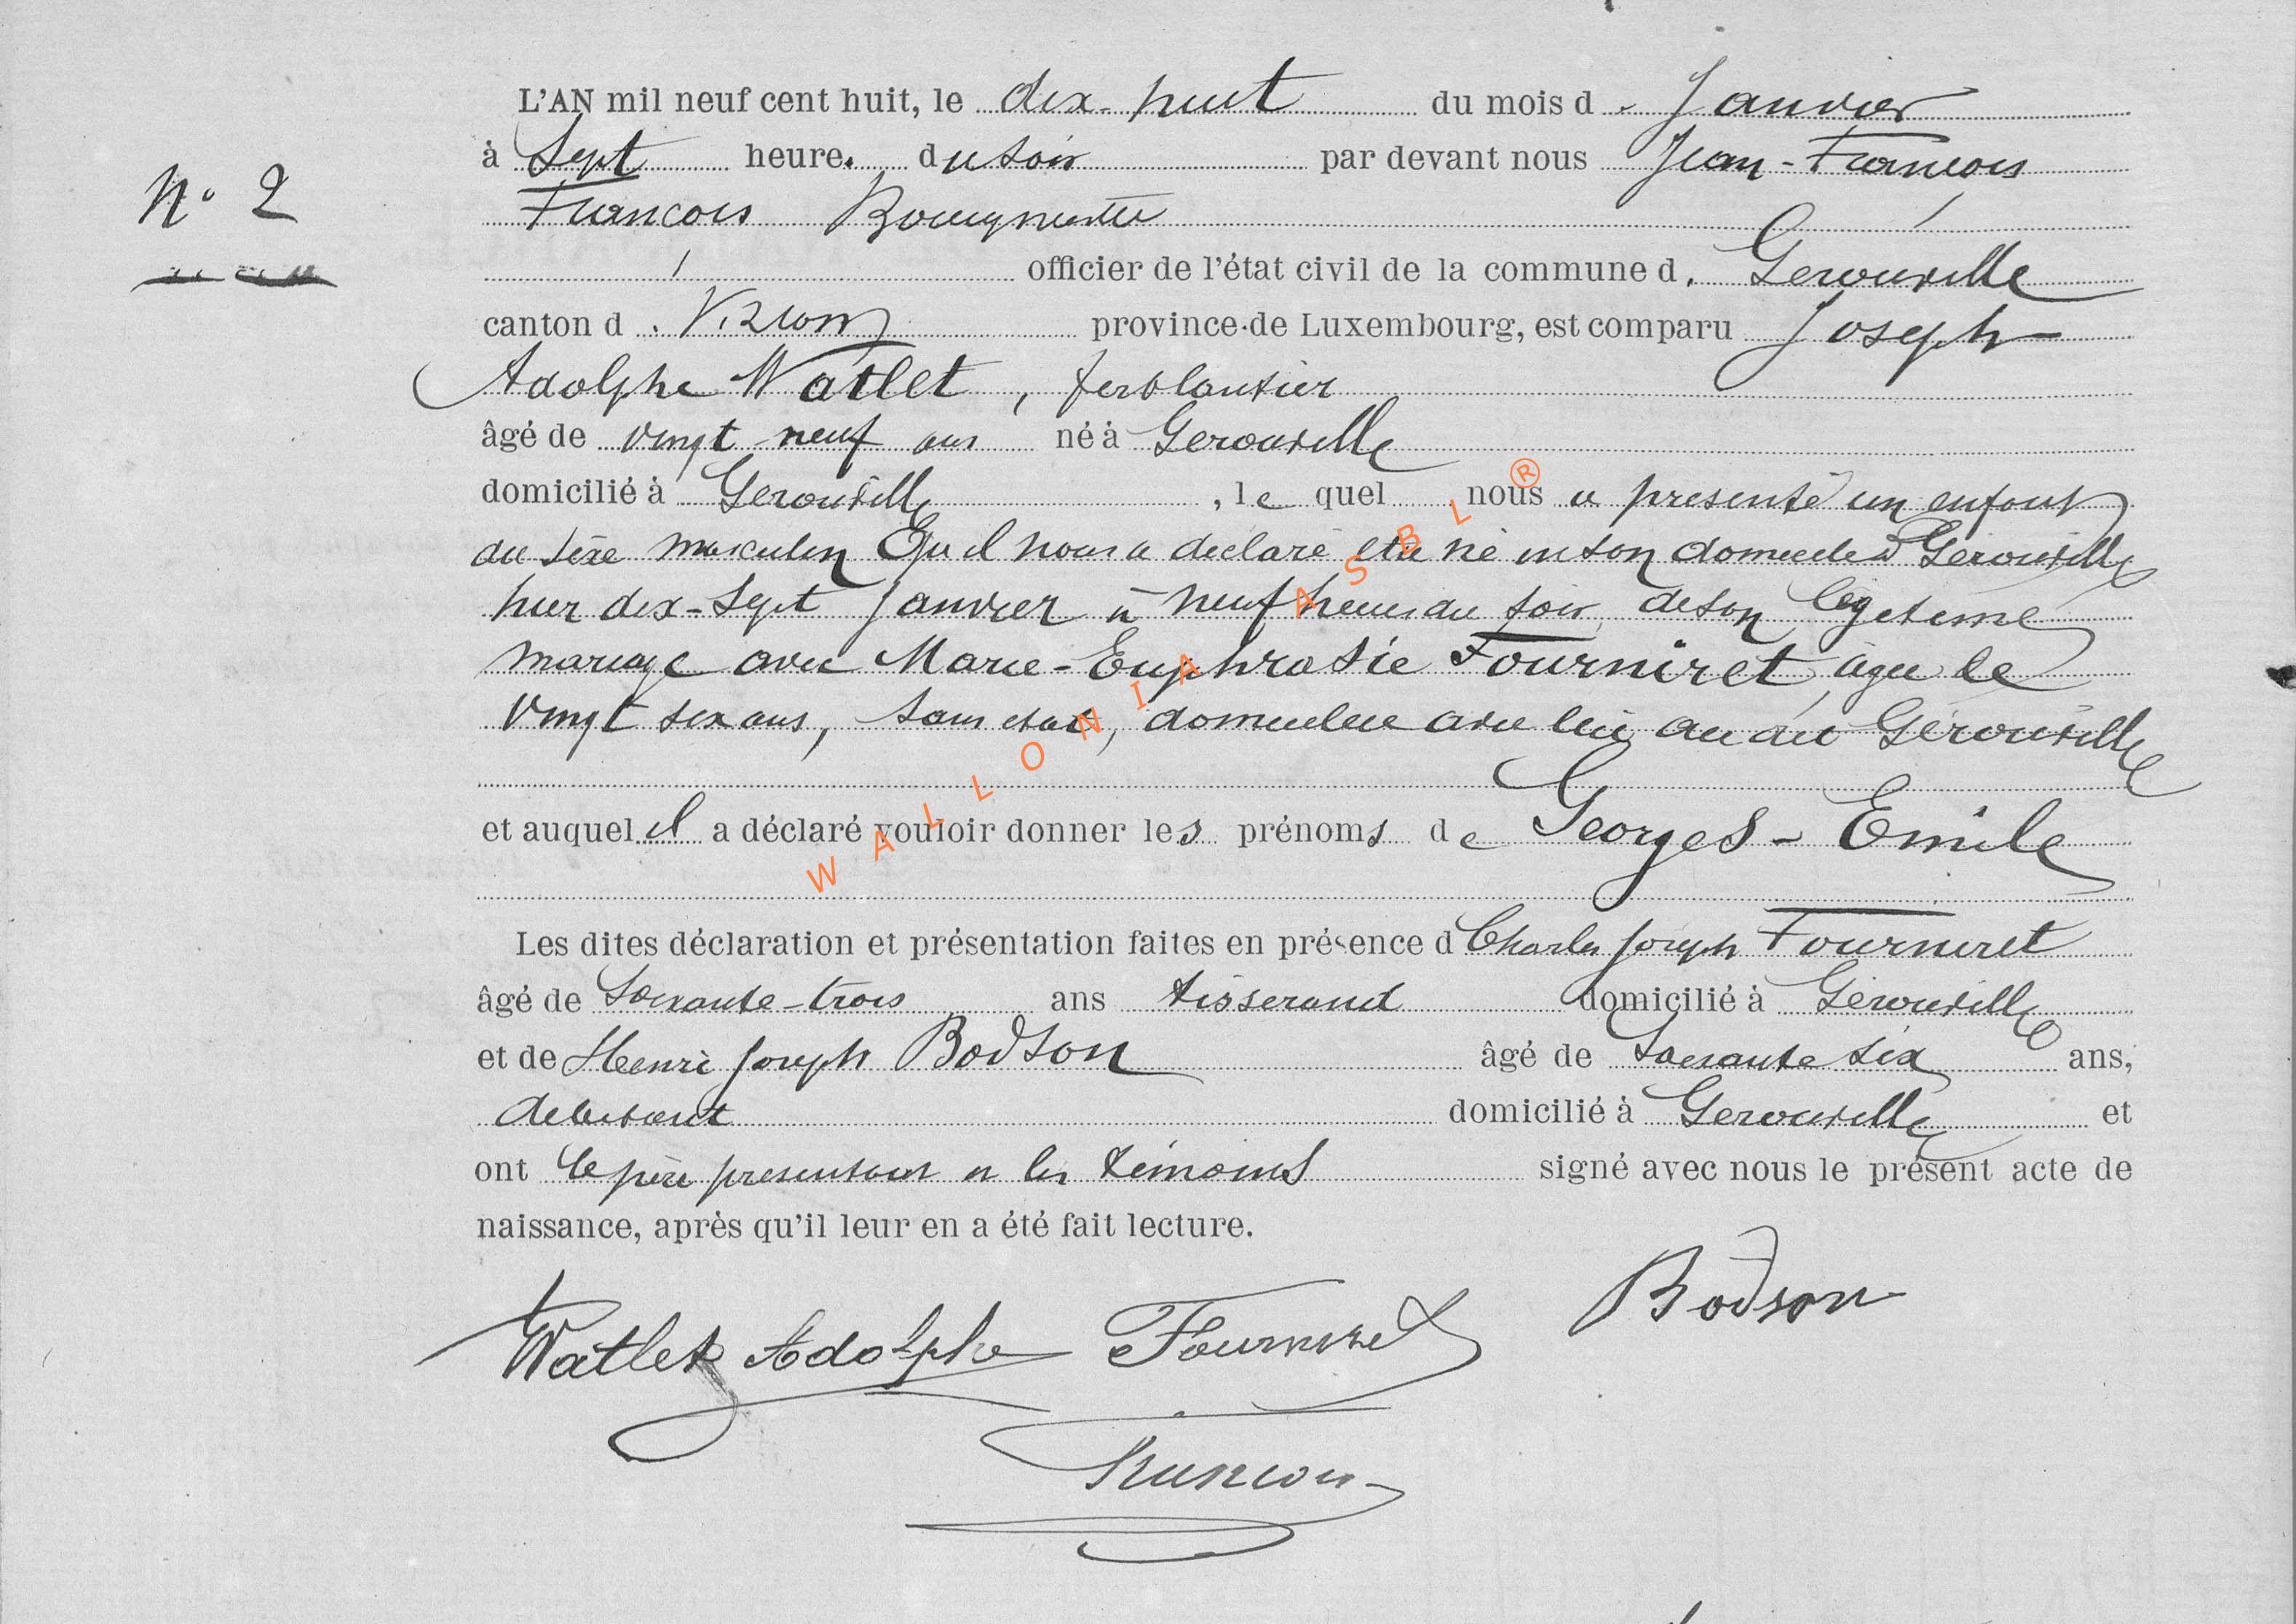 L'AN mil neuf cent huit, le dix-huit du mois d. Janvier
à Sept heure. du soir par devant nous Jean-François
N° 2
François Bourgmestre
officier de l'état civil de la commune d. Gerouville
canton d. Virton province de Luxembourg, est comparu Joseph
Adolphe Watlet, ferblantier
âgé de vingt neuf ans né à Gerouville
domicilié à Gerouville, le quel nous a presenté un enfant
du sexe masculin Qu'il nous a declaré etre né en son domicile à Gerouville
hier dix-sept Janvier à neuf heures du soir, de son legitime
mariage avec Marie-Euphrasie Fourniret, agee de
vingt six ans, sans etat, domiciliee avec lui au dit Gérouville
et auquel il a déclaré vouloir donner les prénoms de Georges-Emile
Les dites déclaration et présentation faites en présence d Charles Joseph Fourniret
âgé de Soixante-trois ans tisserand domicilié à Gerouville
et de Henri Joseph Bodson âgé de Soixante six ans,
debitant domicilié à Gerouville et
ont le père presentant et les témoins signé avec nous le présent acte de
naissance, après qu'il leur en a été fait lecture.
Bodson
Watlet Adolphe Fourniret
François
WALLONIA ASBL®